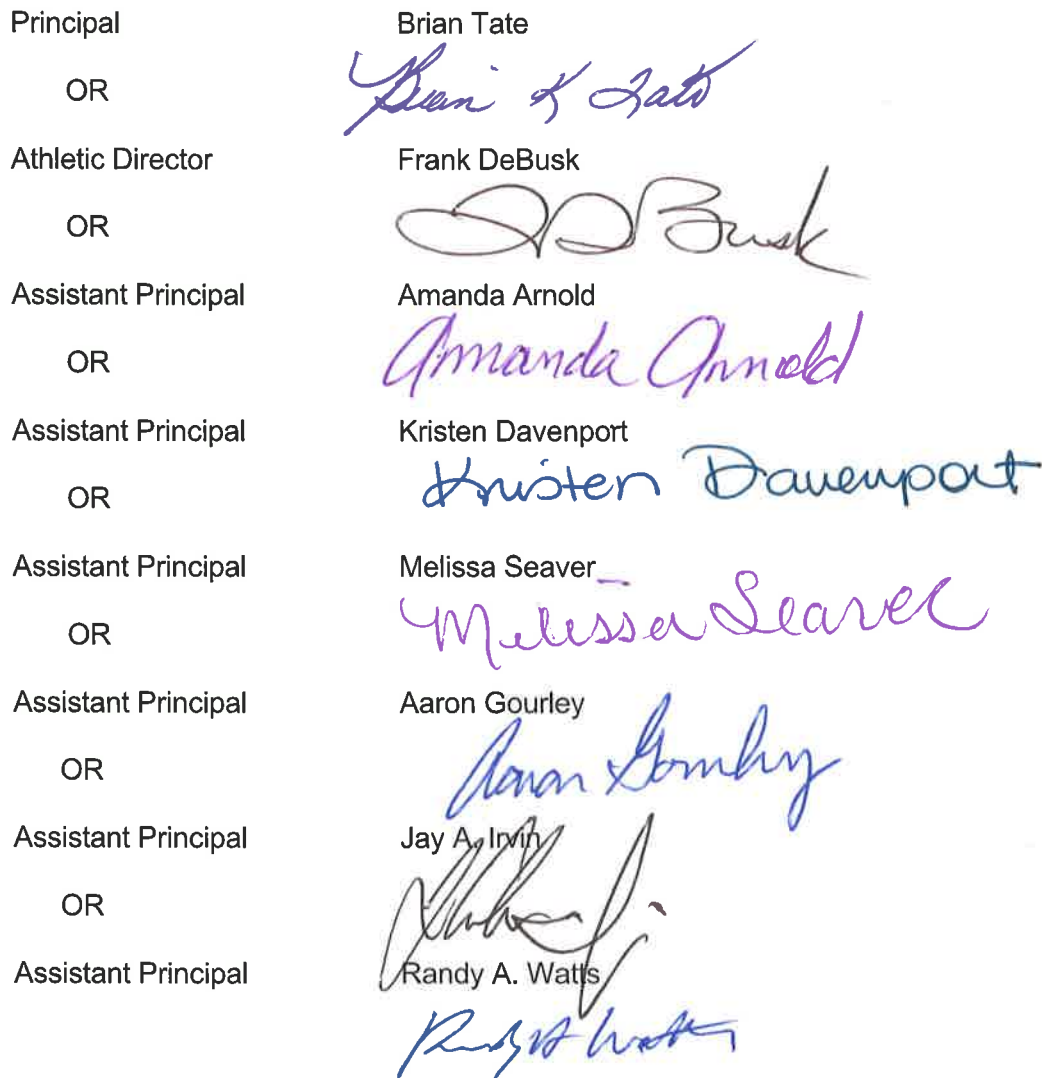 Principal Brian Tate
OR Brian K Tate
Athletic Director Frank DeBusk
OR DeBusk
Assistant Principal Amanda Arnold
OR Amanda Arnold
Assistant Principal Kristen Davenport
OR Kristen Davenport
Assistant Principal Melissa Seaver
OR Melissa Seaver
Assistant Principal Aaron Gourley
OR Aaron Gourley
Assistant Principal Jay A. Irvin
OR
Assistant Principal Randy A. Watts
Randy A Watts